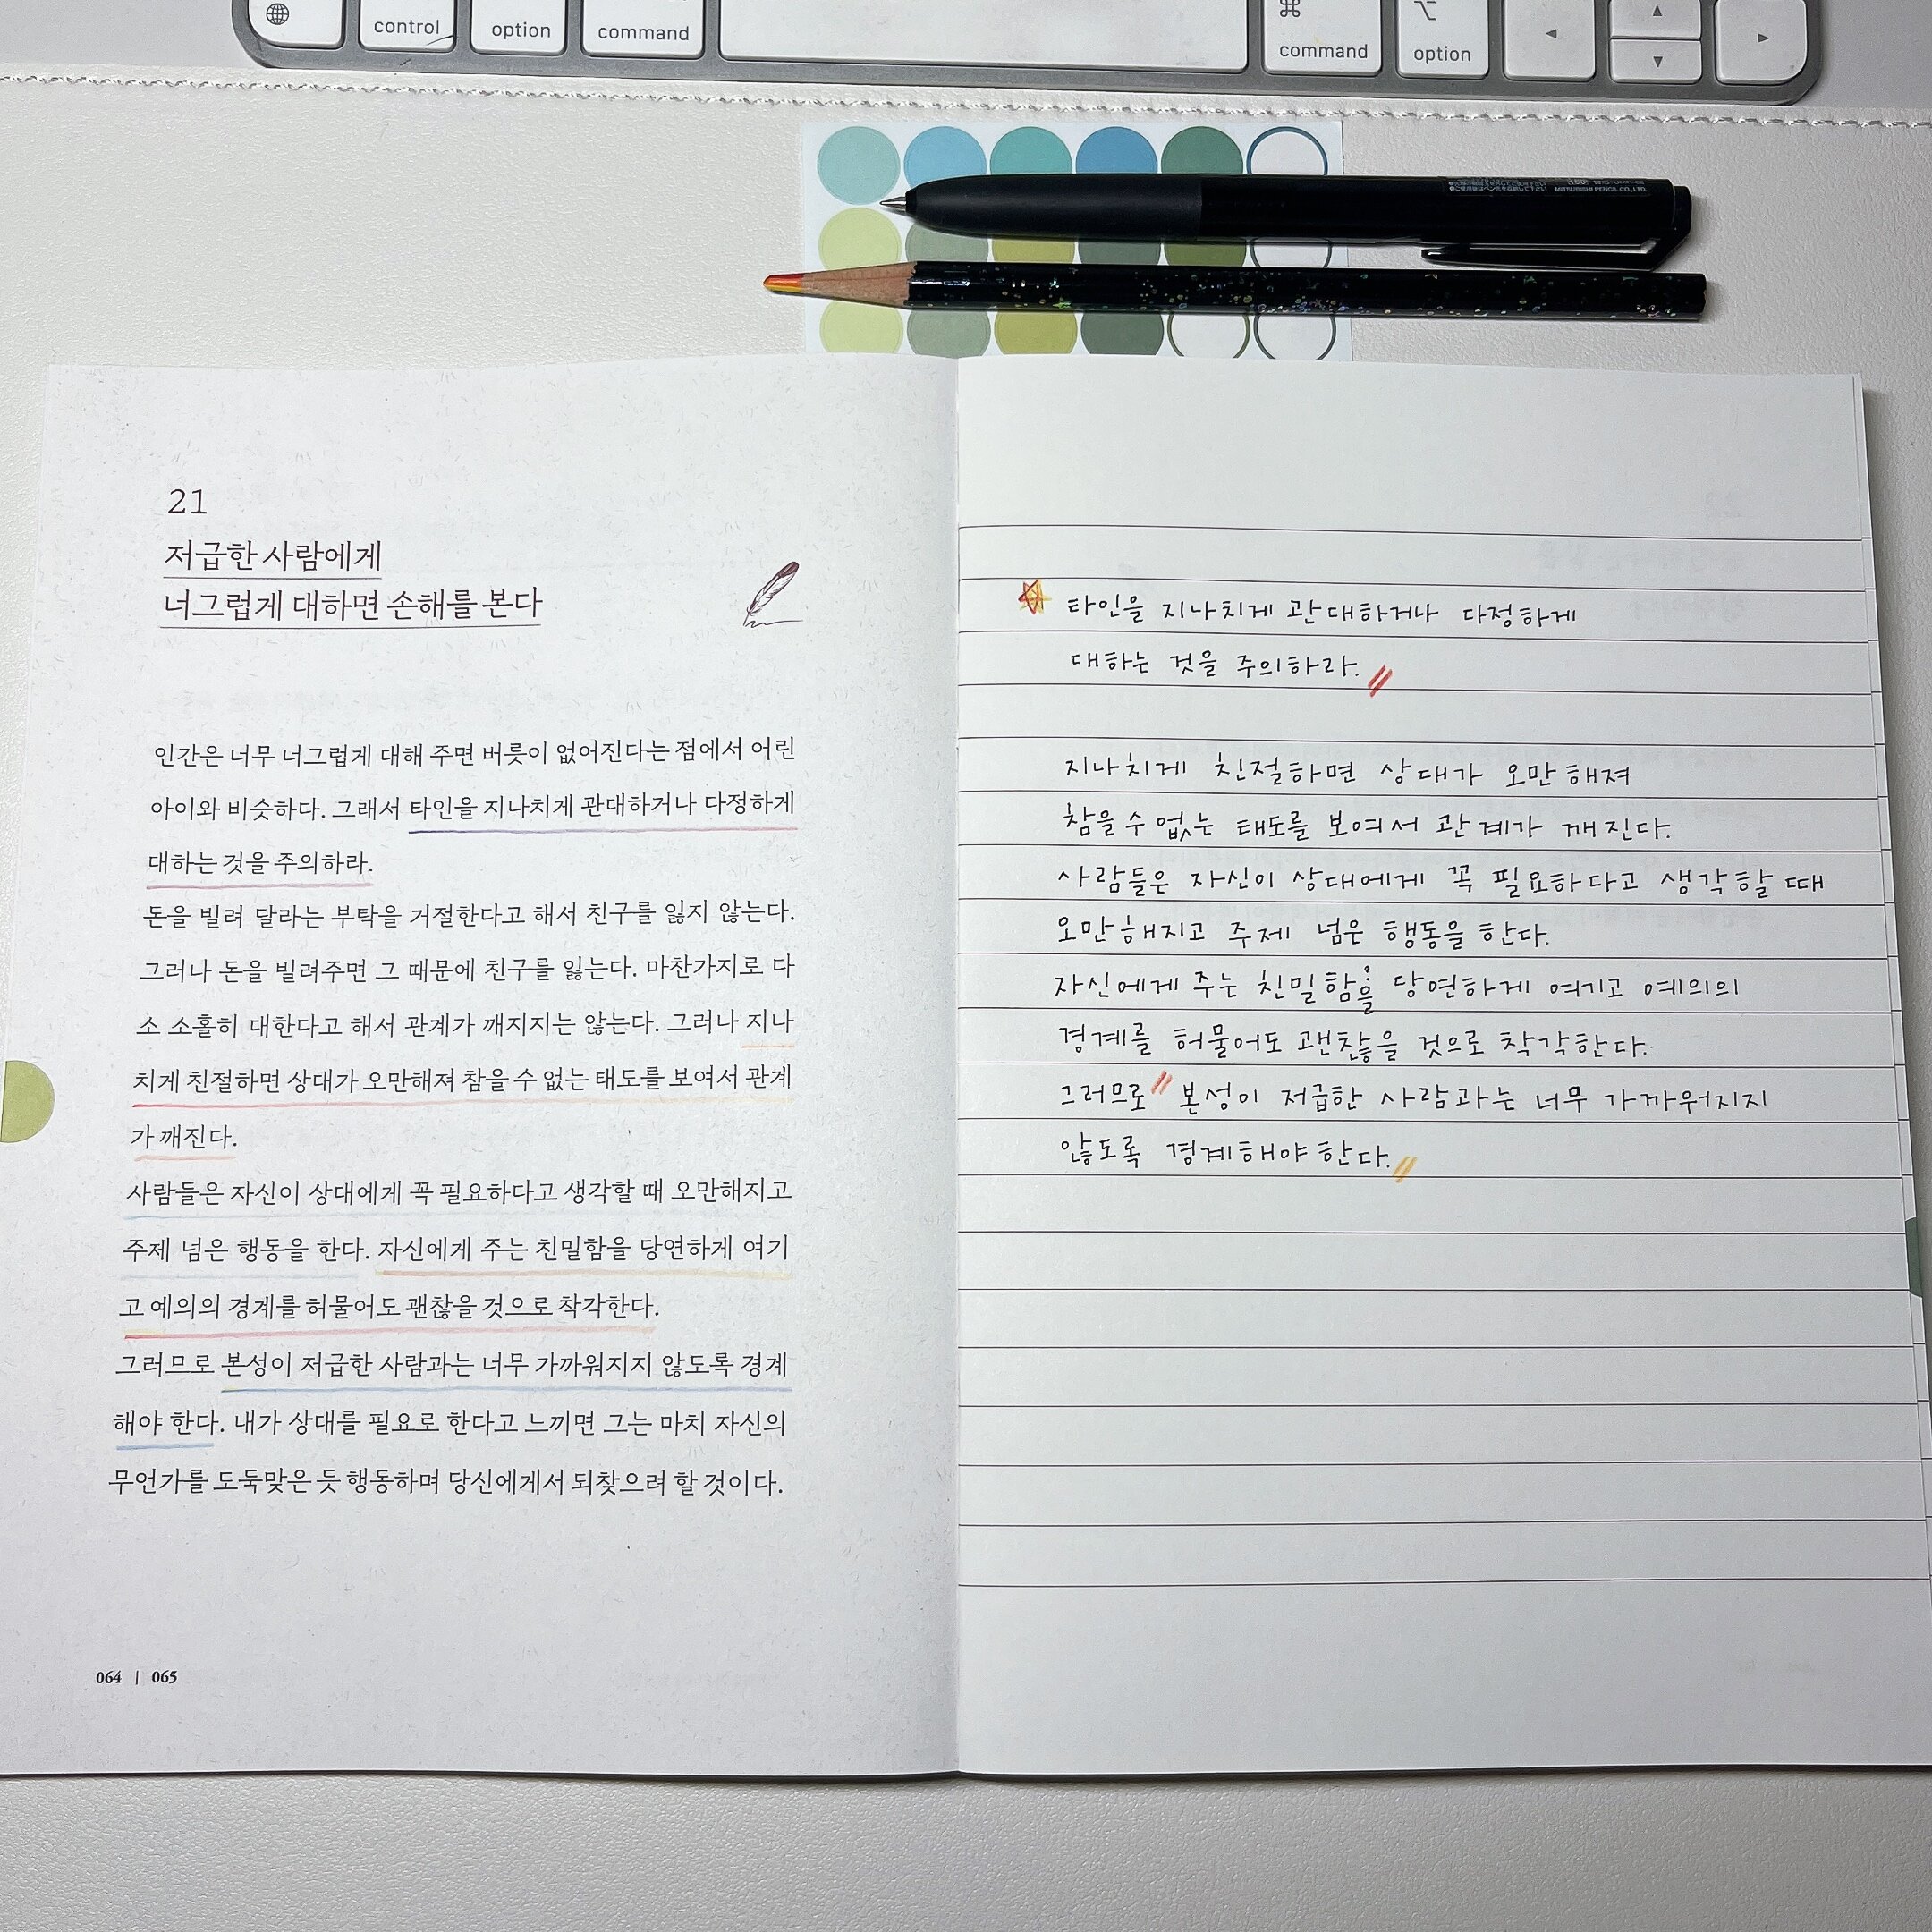 control
option
command
⌘
command
⌥
option
MITSUBISHI PENCIL CO., LTD.
21
저급한 사람에게
너그럽게 대하면 손해를 본다
인간은 너무 너그럽게 대해 주면 버릇이 없어진다는 점에서 어린
아이와 비슷하다. 그래서 타인을 지나치게 관대하거나 다정하게
대하는 것을 주의하라.
돈을 빌려 달라는 부탁을 거절한다고 해서 친구를 잃지 않는다.
그러나 돈을 빌려주면 그 때문에 친구를 잃는다. 마찬가지로 다
소 소홀히 대한다고 해서 관계가 깨지지는 않는다. 그러나 지나
치게 친절하면 상대가 오만해져 참을 수 없는 태도를 보여서 관계
가 깨진다.
사람들은 자신이 상대에게 꼭 필요하다고 생각할 때 오만해지고
주제 넘은 행동을 한다. 자신에게 주는 친밀함을 당연하게 여기
고 예의의 경계를 허물어도 괜찮을 것으로 착각한다.
그러므로 본성이 저급한 사람과는 너무 가까워지지 않도록 경계
해야 한다. 내가 상대를 필요로 한다고 느끼면 그는 마치 자신의
무언가를 도둑맞은 듯 행동하며 당신에게서 되찾으려 할 것이다.
064 | 065
타인을 지나치게 관대하거나 다정하게
대하는 것을 주의하라.
지나치게 친절하면 상대가 오만해져
참을 수 없는 태도를 보여서 관계가 깨진다.
사람들은 자신이 상대에게 꼭 필요하다고 생각할 때
오만해지고 주제 넘은 행동을 한다.
자신에게 주는 친밀함을 당연하게 여기고 예의의
경계를 허물어도 괜찮을 것으로 착각한다.
그러므로 본성이 저급한 사람과는 너무 가까워지지
않도록 경계해야 한다.